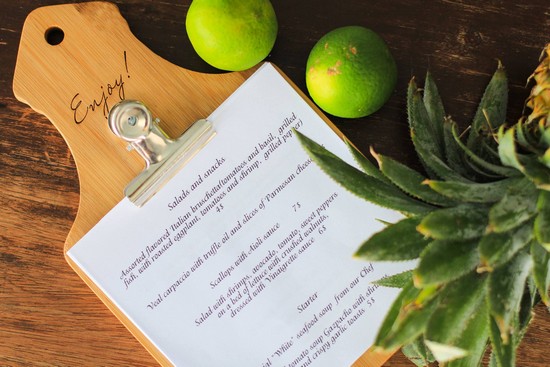 Enjoy!
Salads and snacks
Assorted flavored Italian bruschetta(tomatoes and basil, grilled
fish, with roasted eggplant, tomatoes and shrimp, grilled pepper)
4$
Veal carpaccio with truffle oil and slices of Parmesan chees
Scallops with Aioli sauce 7$
Salad with shrimps, avocado, tomato, sweet peppers
on a bed of lettuce with crushed walnuts,
dressed with Vinaigrette sauce 6$
Starter
"White" seafood soup from our Chef
tomato soup Gazpacho with 5$
and crispy garlic toasts